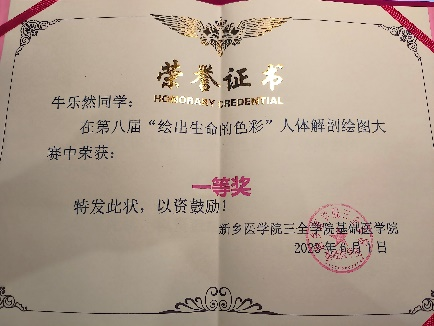 荣誉证书
HONORARY CREDENTIAL
牛乐然同学：
在第八届“绘出生命的色彩”人体解剖绘图大
赛中荣获：
一等奖
特发此状，以资鼓励！
新乡医学院三全学院基础医学院
2023年6月1日